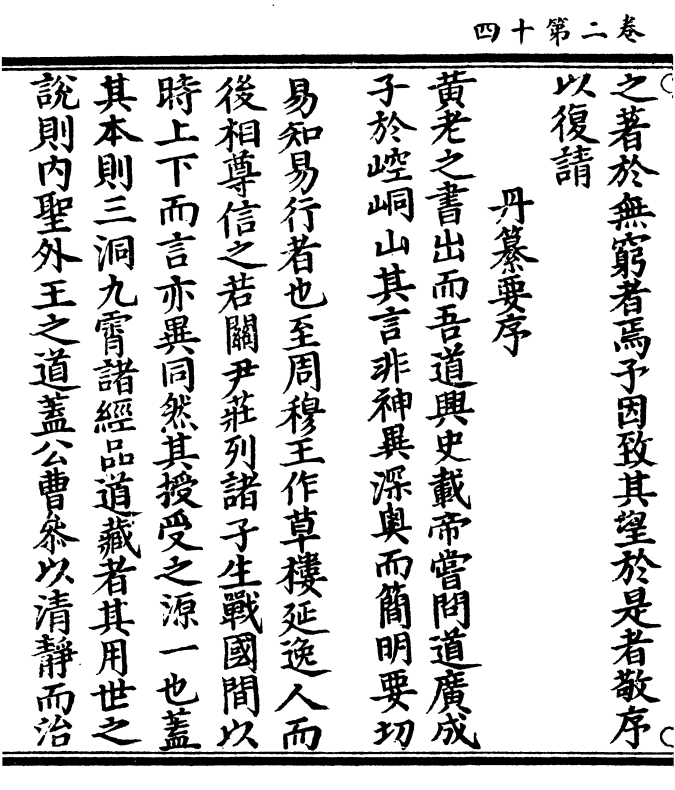 卷二第十四
之著於無窮者焉予因致其望於是者敬序
以復請
丹纂要序
黃老之書出而吾道興史載帝嘗問道廣成
子於崆峒山其言非神異深奧而簡明要切
易知易行者也至周穆王作草樓延逸人而
後相尊信之若關尹莊列諸子生戰國間以
時上下而言亦異同然其授受之源一也蓋
其本則三洞九霄諸經品道藏者其用世之
說則内聖外王之道蓋公曹叅以清靜而治